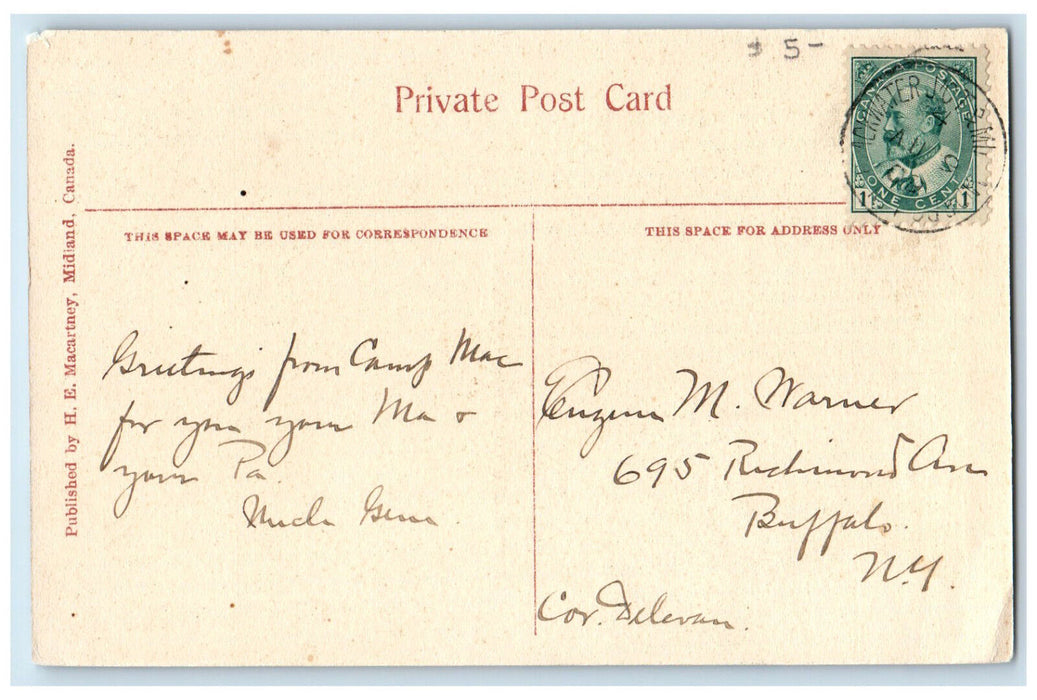 $ 5-
Private Post Card
CANADA POSTAGE
1 ONE CENT 1
THIS SPACE MAY BE USED FOR CORRESPONDENCE
THIS SPACE FOR ADDRESS ONLY
Published by H. E. Macartney, Midland, Canada.
Greetings from Camp Mac
for you your Ma &
your Pa.
Uncle Gene
Eugene M. Warner
695 Richmond Ave
Buffalo.
N.Y.
Cor. Delevan.